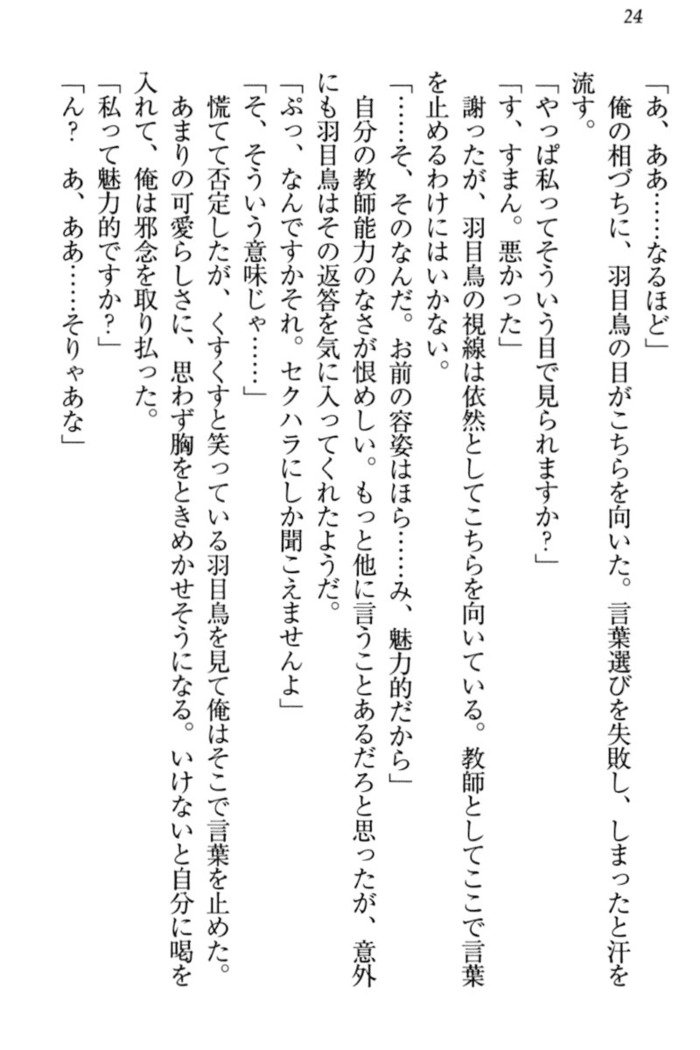 24
「あ、ああ……なるほど」
　俺の相づちに、羽目鳥の目がこちらを向いた。言葉選びを失敗し、しまったと汗を
流す。
「やっぱ私ってそういう目で見られますか？」
「す、すまん。悪かった」
　謝ったが、羽目鳥の視線は依然としてこちらを向いている。教師としてここで言葉
を止めるわけにはいかない。
「……そ、そのなんだ。お前の容姿はほら……み、魅力的だから」
　自分の教師能力のなさが恨めしい。もっと他に言うことあるだろと思ったが、意外
にも羽目鳥はその返答を気に入ってくれたようだ。
「ぷっ、なんですかそれ。セクハラにしか聞こえませんよ」
「そ、そういう意味じゃ……」
　慌てて否定したが、くすくすと笑っている羽目鳥を見て俺はそこで言葉を止めた。
　あまりの可愛らしさに、思わず胸をときめかせそうになる。いけないと自分に喝を
入れて、俺は邪念を取り払った。
「私って魅力的ですか？」
「ん？　あ、ああ……そりゃあな」